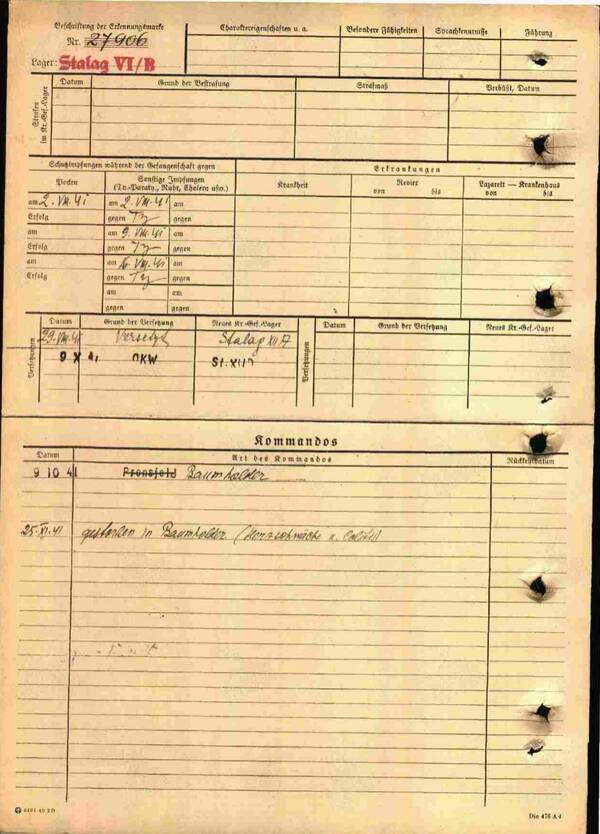 Beschriftung der Erkennungsmarke
Nr. 27906
Lager: Stalag VI/B
Charaktereigenschaften u. a.
Besondere Fähigkeiten
Sprachkenntnisse
Führung
Strafen im Kr.-Gef.-Lager
Datum
Grund der Bestrafung
Strafmaß
Verbüßt, Datum
Schutzimpfungen während der Gefangenschaft gegen
Erkrankungen
Pocken
Sonstige Impfungen
(Ty.-Paraty., Ruhr, Cholera usw.)
Krankheit
Revier
von bis
Lazarett — Krankenhaus
von bis
am 2. VIII. 41 am 2. VIII. 41 am
Erfolg gegen Ty gegen
am am 9. VIII. 41 am
Erfolg gegen Ty gegen
am am 16. VIII. 41 am
Erfolg gegen Ty gegen
am am
gegen gegen
Versetzungen
Datum
Grund der Versetzung
Neues Kr.-Gef.-Lager
Versetzungen
Datum
Grund der Versetzung
Neues Kr.-Gef.-Lager
29. VIII. 41 Versetzt Stalag XII A
9 X 41 OKW St. XII
Kommandos
Datum
Art des Kommandos
Rückkehrdatum
9 10 41 Pronsfeld Baumholder
25. XI. 41 gestorben in Baumholder (Herzschwäche u. Colitis)
4401 40 2 D
Din 476 A 4